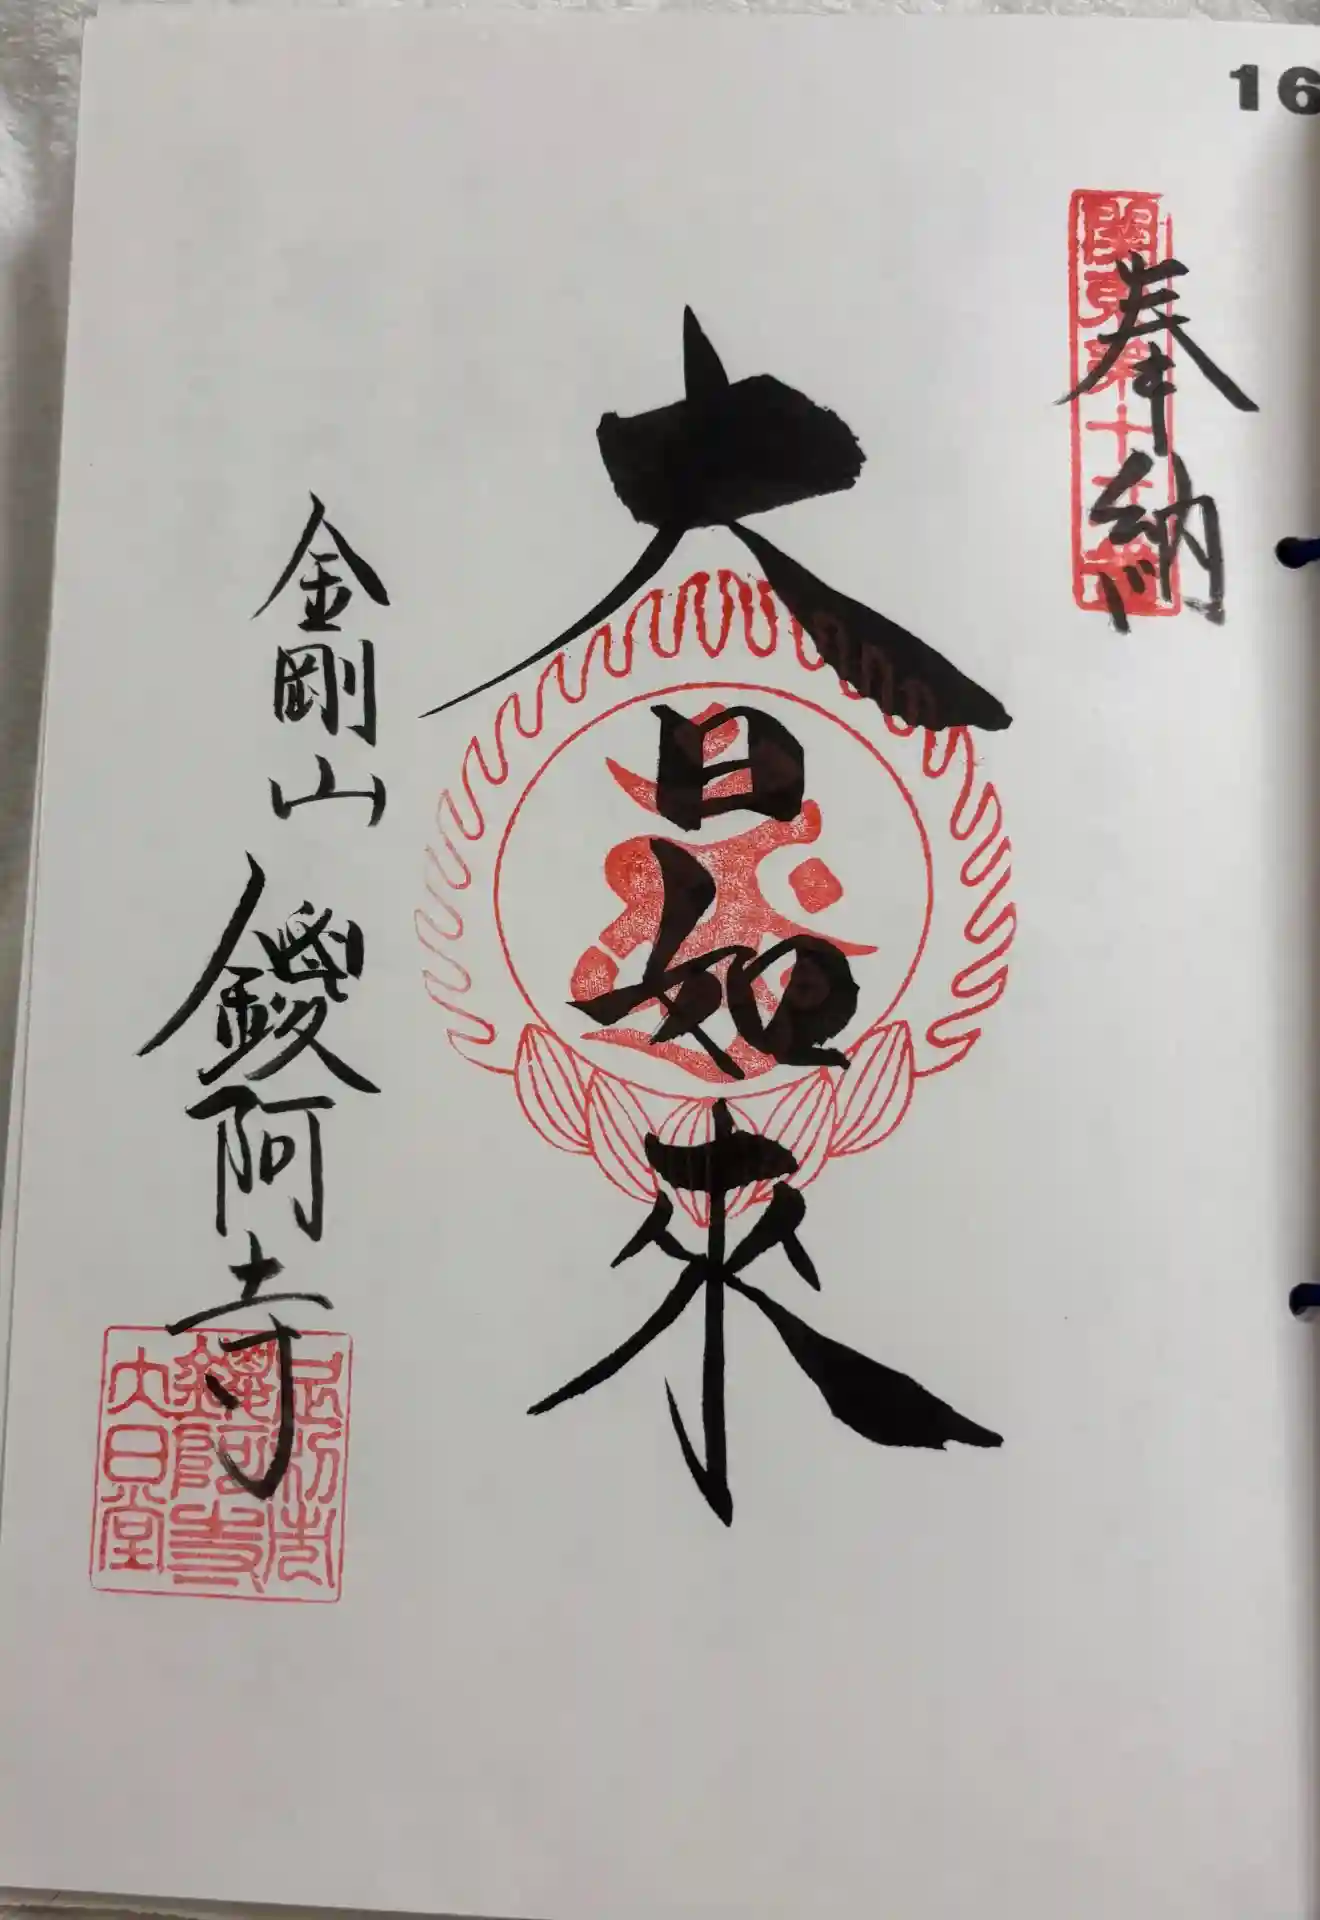 16
奉納
関東第十六番
大日如來
金剛山
鑁阿寺
足利市
鑁阿寺
大日堂